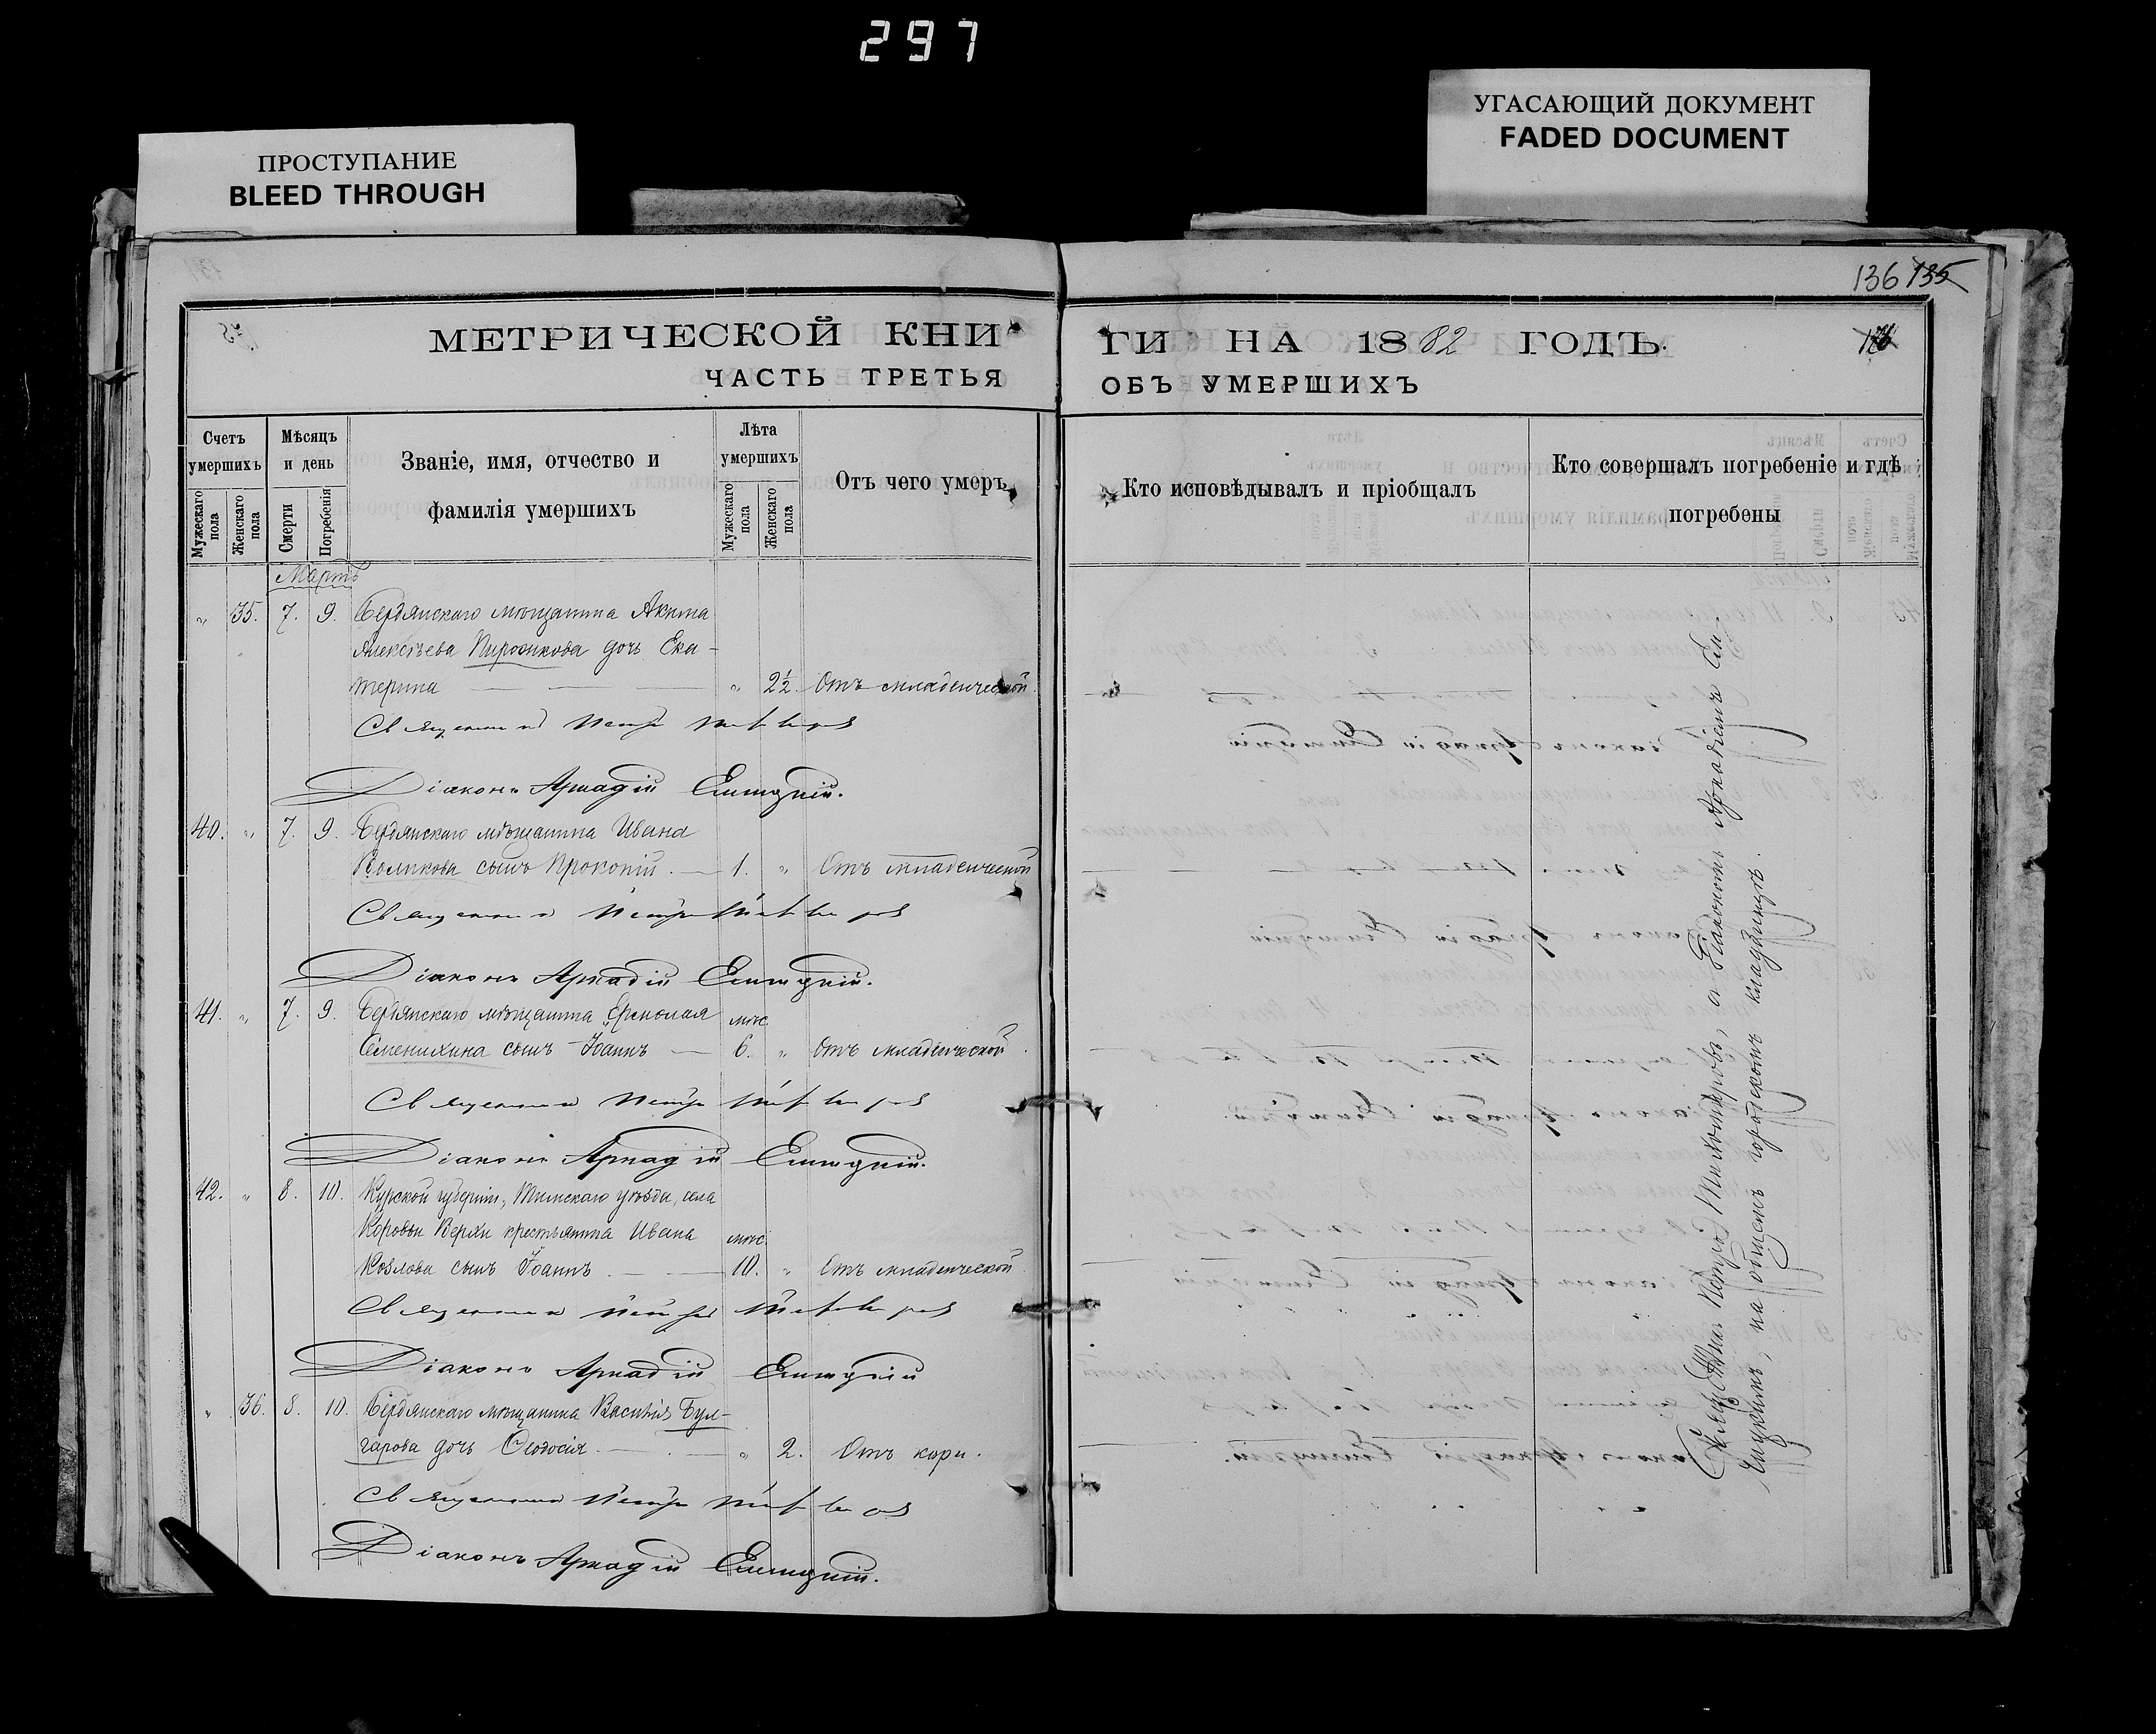 297
ПРОСТУПАНИЕ
BLEED THROUGH
УГАСАЮЩИЙ ДОКУМЕНТ
FADED DOCUMENT
136 135
МЕТРИЧЕСКОЙ КНИ
ЧАСТЬ ТРЕТЬЯ
Счетъ умершихъ
Мужескаго пола
Женскаго пола
Мѣсяцъ и день
Смерти
Погребенія
Званіе, имя, отчество и
фамилія умершихъ
Лѣта умершихъ
Мужескаго пола
Женскаго пола
Отъ чего умеръ
Мартъ
„ 35. 7. 9. Бердянскаго мѣщанина Акима
Алексѣева дочь Ека-
терина — „ 2½. Отъ младенческой
Священникъ Петръ
Діаконъ Аркадій
40. „ 7. 9. Бердянскаго мѣщанина Ивана
Воликова сынъ Прокопій. — 1. „ Отъ младенческой
Священникъ Петръ
Діаконъ Аркадій
41. „ 7. 9. Бердянскаго мѣщанина
Семенихина сынъ Іоаннъ — мѣс. 6. „ Отъ младенческой
Священникъ Петръ
Діаконъ Аркадій
42. „ 8. 10. Курской губерніи, Тимскаго уѣзда, села
Коровьи Верхи крестьянина Ивана
Козлова сынъ Іоаннъ — мѣс. 10. „ Отъ младенческой
Священникъ Петръ
Діаконъ Аркадій
„ 36. 8. 10. Бердянскаго мѣщанина Василія Бул-
гарова дочь Ѳеодосія — „ 2. Отъ кори.
Священникъ Петръ
Діаконъ Аркадій
ГИ НА 1882 ГОДЪ.
ОБЪ УМЕРШИХЪ
Кто исповѣдывалъ и пріобщалъ
Кто совершалъ погребеніе и гдѣ
погребены
Священникъ Петръ съ Діакономъ Аркадіемъ
на общемъ городскомъ кладбищѣ.